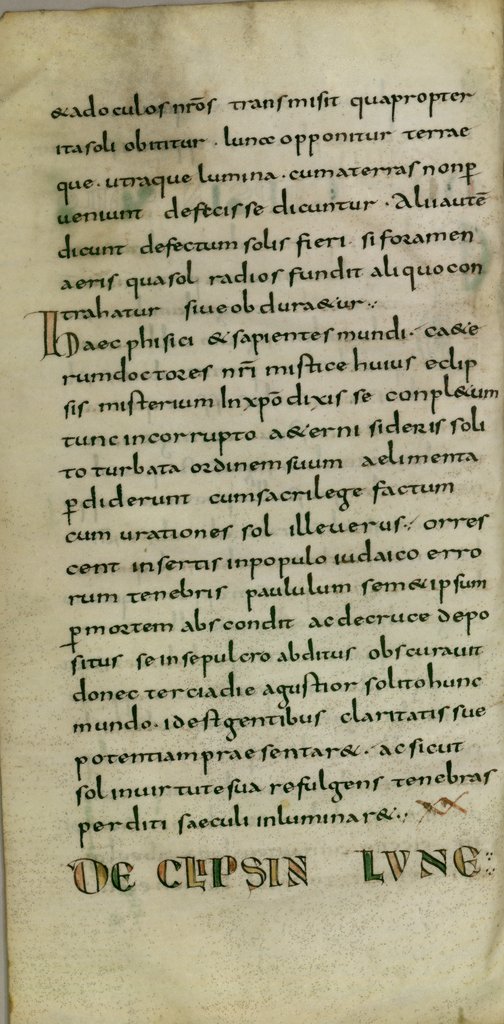 &ad oculos nr̄os transmisit quapropter
ita soli obititur · lunæ opponitur terrae
que · utraque lumina · cum a terras non ꝑ
veniunt defecisse dicuntur · Alii autē
dicunt defectum solis fieri · si foramen
aeris qua sol radios fundit aliquo con
trahatur sive ob dura&ur ·,·
Haec phisici & sapientes mundi · ca&e
rum doctores nr̄i mistice huius eclip
sis misterium In xpō dixis se conpl&um
tunc incorrupto a&erni sideris soli
to turbata ordinem suum aelimenta
ꝑdiderunt cum sacrilege factum
cum urationes sol ille verus ·,· orres
cent insertis in populo iudaico erro
rum tenebris paululum sem&ipsum
ꝑ mortem abscondit ac de cruce depo
situs se in sepulcro abditus obscuravit
donec tercia die agustior solito hunc
mundo · id est gentibus claritatis sue
potentiam praesentar& · ac sicut
sol in virtute sua refulgens tenebras
perditi saeculi inluminar& ·,·
DE CLIPSIN LVNE